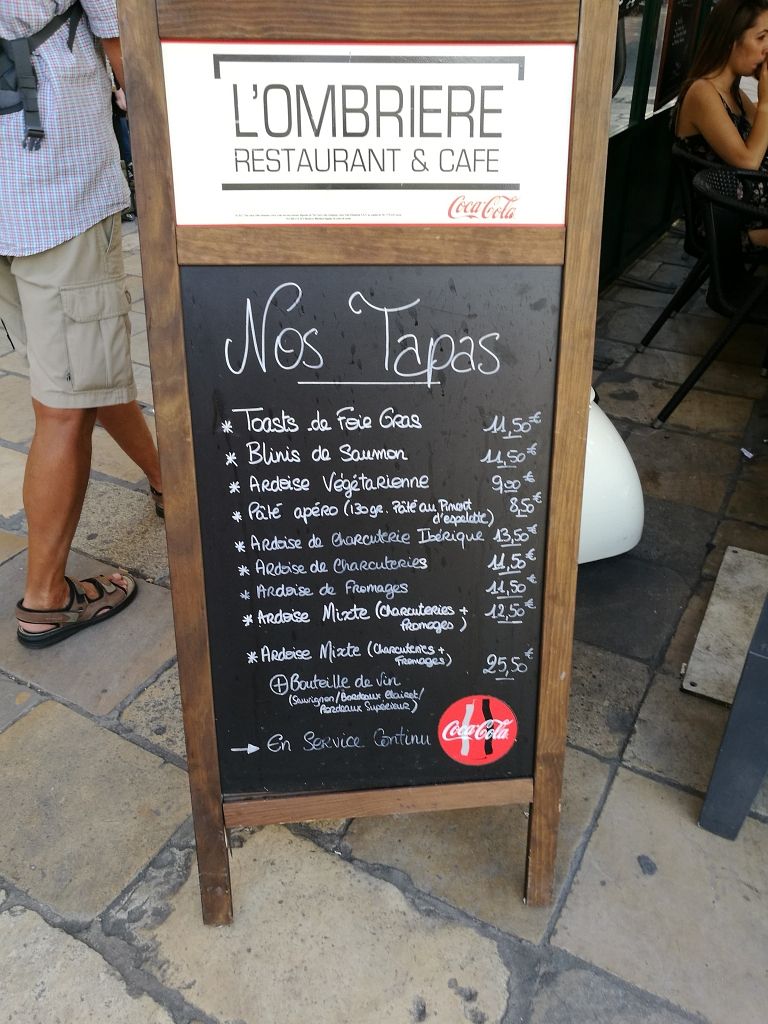 L'OMBRIERE
RESTAURANT & CAFE
Coca-Cola
Nos Tapas
* Toasts de Foie Gras 11,50€
* Blinis de Saumon 11,50€
* Ardoise Végétarienne 9,00€
* Pâté apéro (130gr. Pâté au Piment 8,50€
d'espelette)
* Ardoise de Charcuterie Ibérique 13,50€
* Ardoise de Charcuteries 11,50€
* Ardoise de Fromages 11,50€
* Ardoise Mixte (Charcuteries + 12,50€
Fromages)
* Ardoise Mixte (Charcuteries + 25,50€
Fromages)
⊕ Bouteille de vin
(Sauvignon/Bordeaux Clairet/
Bordeaux Supérieur)
→ En Service Continu
Coca-Cola